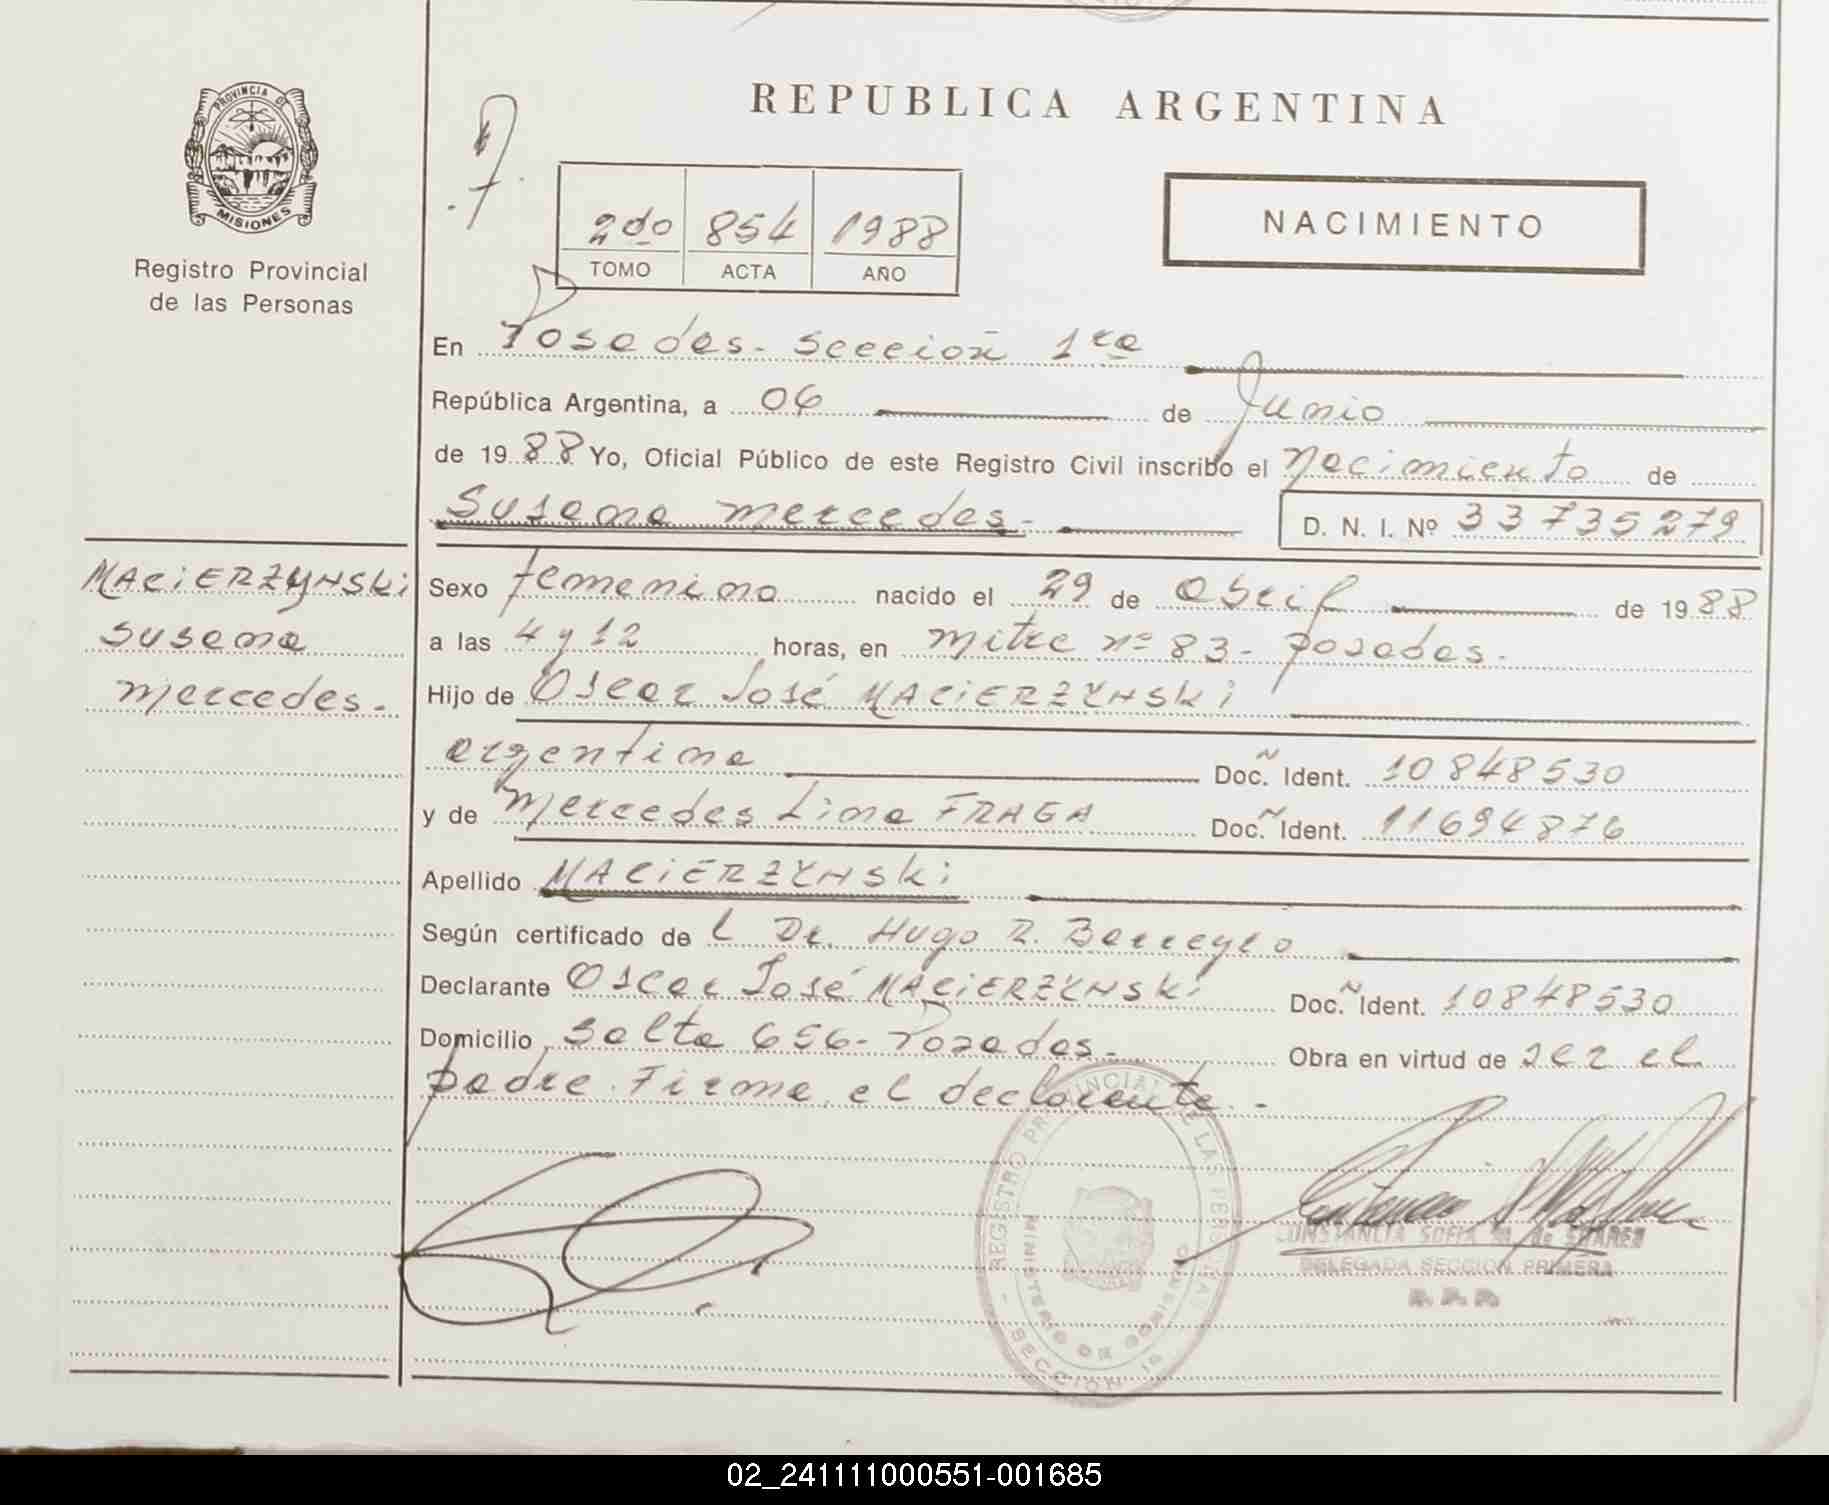 REPUBLICA ARGENTINA
PROVINCIA DE
MISIONES
Registro Provincial
de las Personas
2do 854 1988
TOMO ACTA AÑO
NACIMIENTO
En Posadas - Sección 1ra
República Argentina, a 06 de Junio
de 1988 Yo, Oficial Público de este Registro Civil inscribo el Nacimiento de
Susana Mercedes.- D. N. I. Nº 33735279
MACiERZYNSki
Susana
Mercedes.-
Sexo femenino nacido el 29 de Abril de 1988
a las 4 y 12 horas, en Mitre nº 83 - Posadas.
Hijo de Oscar José MACiERZYNSki
argentina Doc. Ident. 10848530
y de Mercedes Lina FRAGA Doc. Ident. 11694876
Apellido MACiERZYNSki
Según certificado de L Dr. Hugo R. Barreyro
Declarante Oscar José MACiERZYNSki Doc. Ident. 10848530
Domicilio Salta 656 - Posadas.- Obra en virtud de ser el
padre. Firma el declarante.-
REGISTRO PROVINCIAL DE LAS PERSONAS
MINISTERIO DE GOBIERNO
- SECCION 1ª -
CONSTANCIA SOFIA M. de SUAREZ
DELEGADA SECCION PRIMERA
R. P. P.
02_241111000551-001685